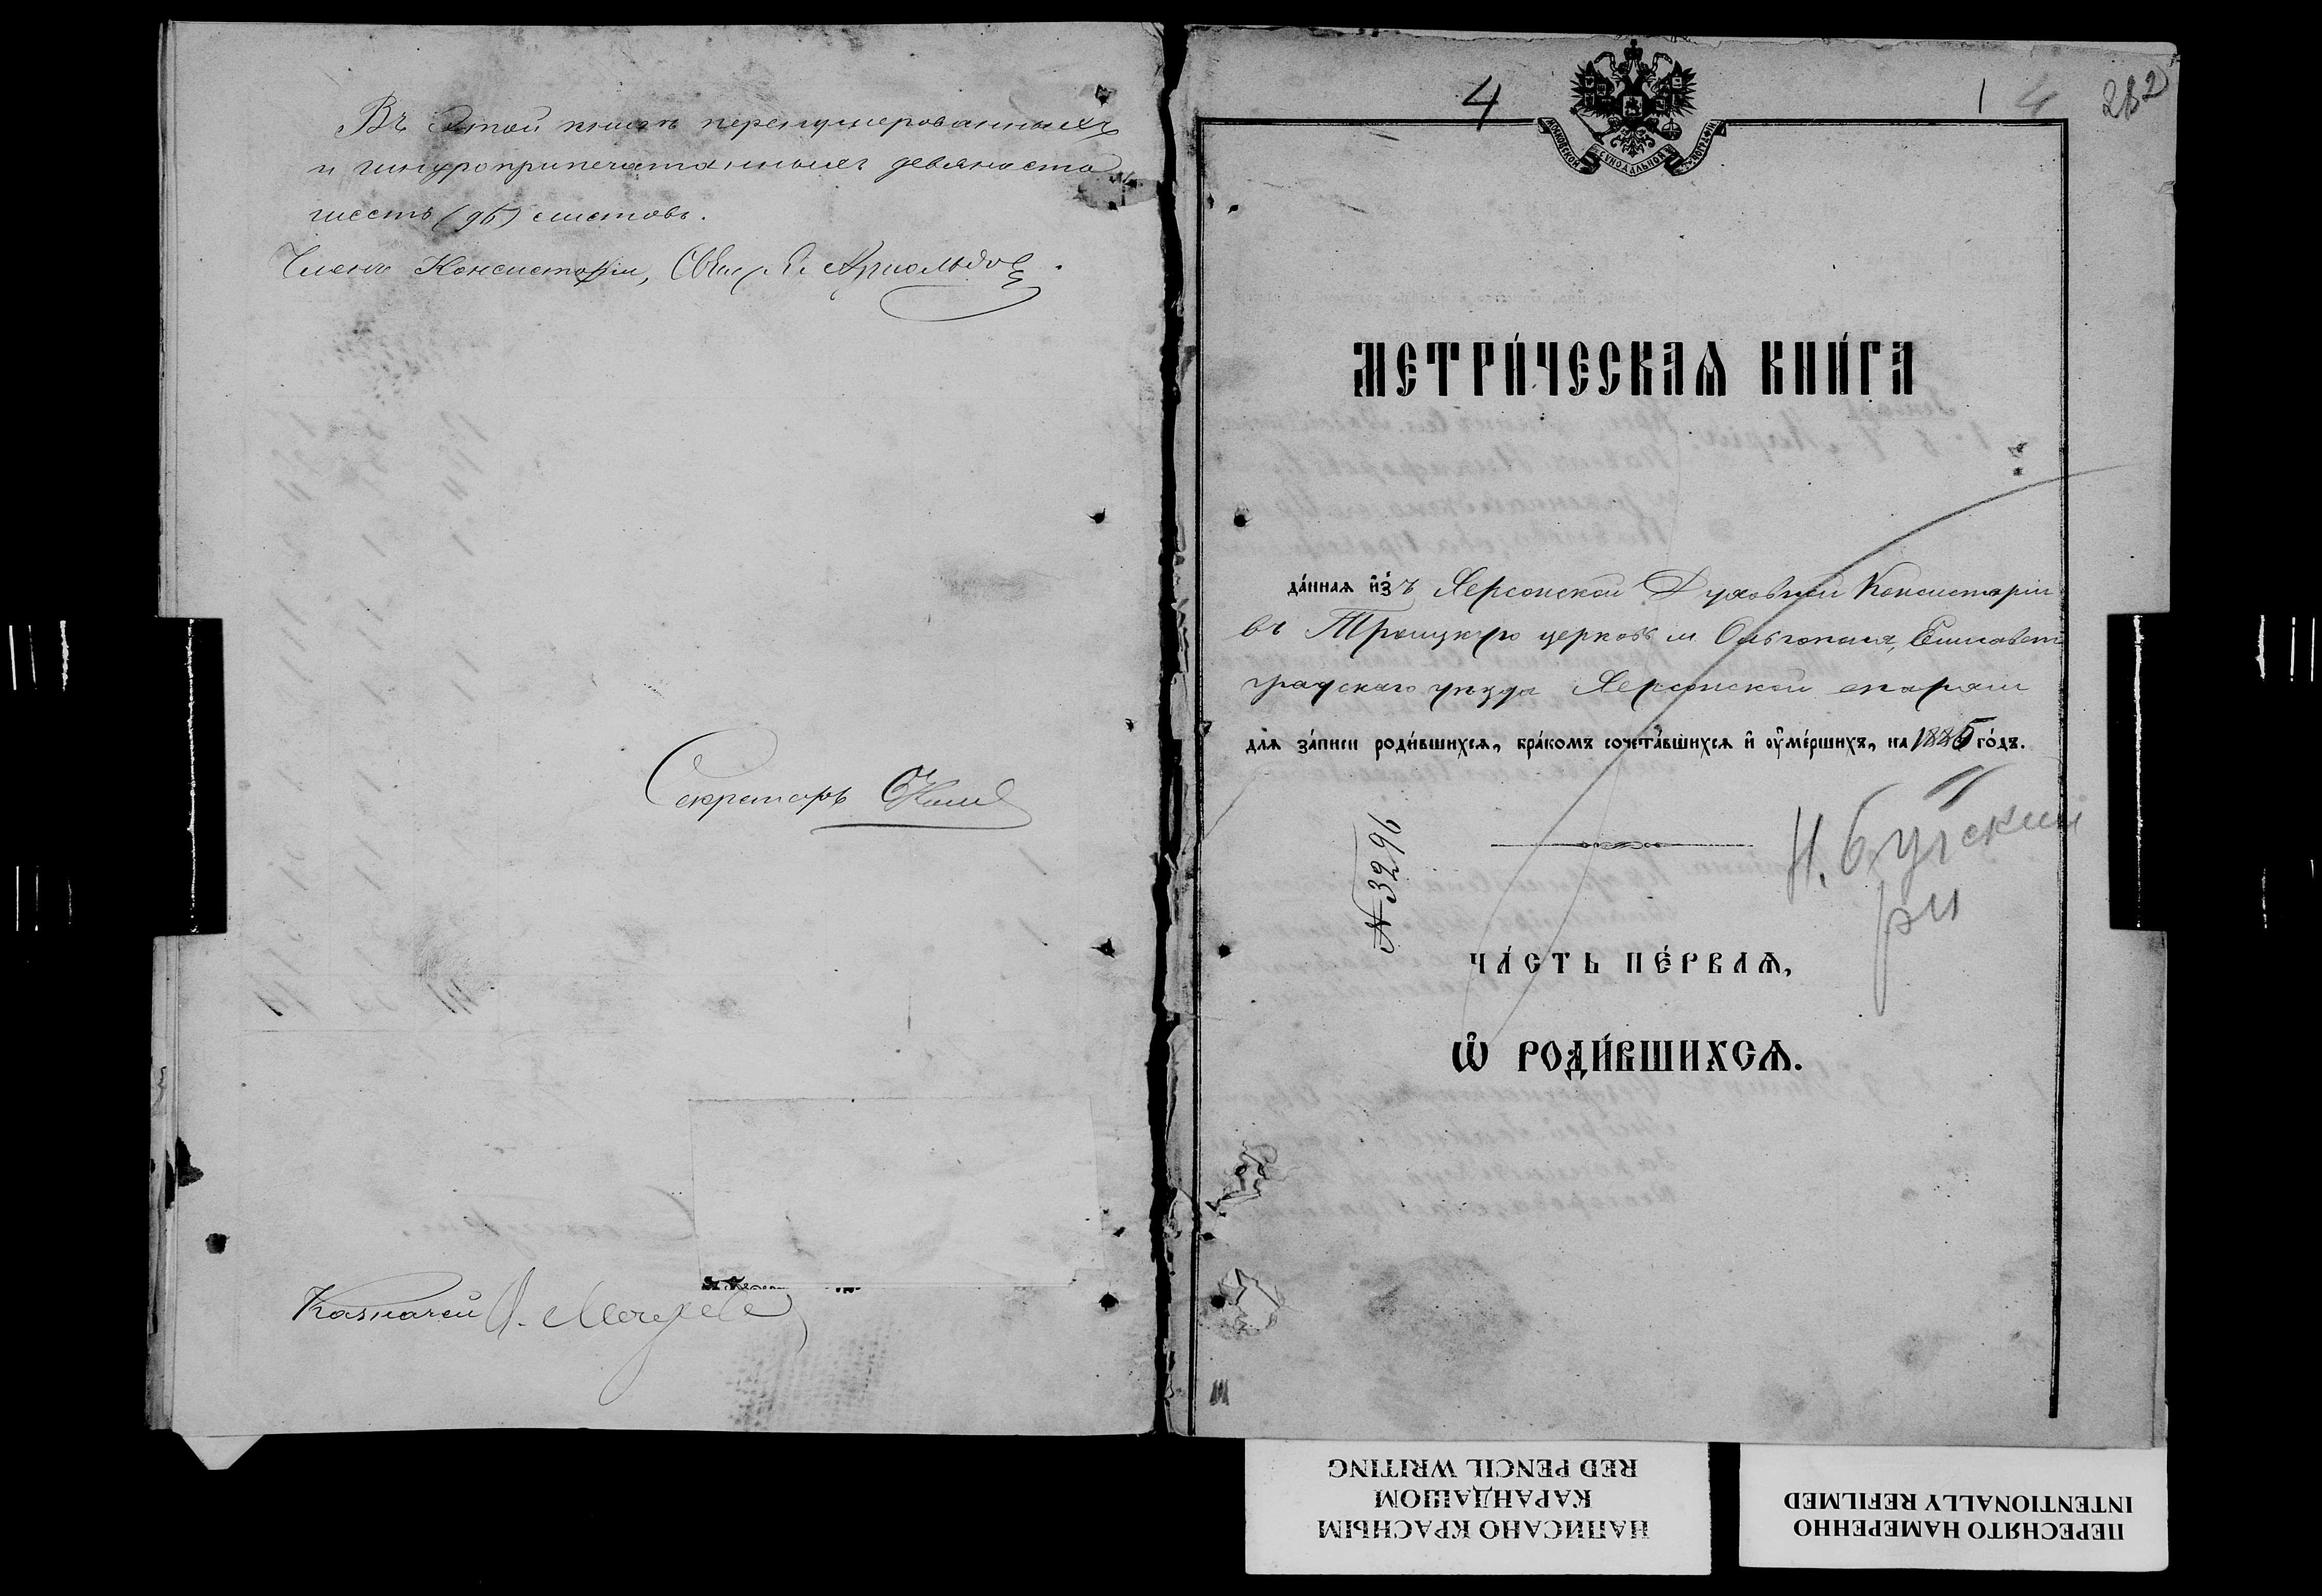 Въ этой книгѣ перенумерованныхъ
и шнуроприпечатанныхъ девяносто
шесть (96) листовъ.
Членъ Консисторіи, Свящ. Арнольдовъ.
Секретарь
Казначей
4
1 4 212
МОСКОВСКОЙ СѴНОДАЛЬНОЙ ТѴПОГРАФІИ
МЕТРИ́ЧЕСКАѦ КНИ́ГА
да́ннаѧ и҆зъ Херсонской Духовной Консисторіи
въ Троицкую церковь м. Ольгополя, Елисавет
градскаго уѣзда Херсонской епархіи
для за́писи роди́вшихсѧ, бра́комъ сочета́вшихсѧ и҆ ᲂу҆ме́ршихъ, на 1885 го́дъ.
№ 3296
Н. Бугский
рн
ЧА́СТЬ ПЕ́РВАѦ,
Ѽ РОДИ́ВШИХСѦ.
НАПИСАНО КРАСНЫМ
КАРАНДАШОМ
RED PENCIL WRITING
ПЕРЕСНЯТО НАМЕРЕННО
INTENTIONALLY REFILMED